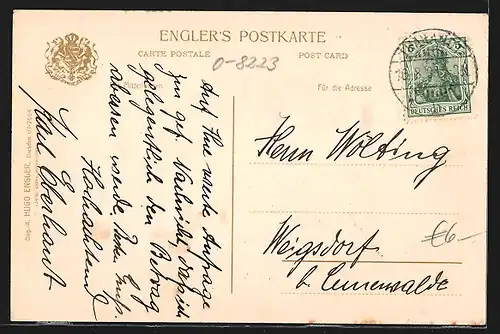 ENGLER'S POSTKARTE
CARTE POSTALE
POST CARD
0-8223
Für die Adresse
DEUTSCHES REICH
Auf Ihre werte Anfrage
zur gef. Nachricht, daß ich
gelegentlich den Betrag
werde
Hochachtend
Karl Eberhardt
Herrn Wölbing
Weigsdorf
b. Cunewalde
€6-
HUGO ENGLER